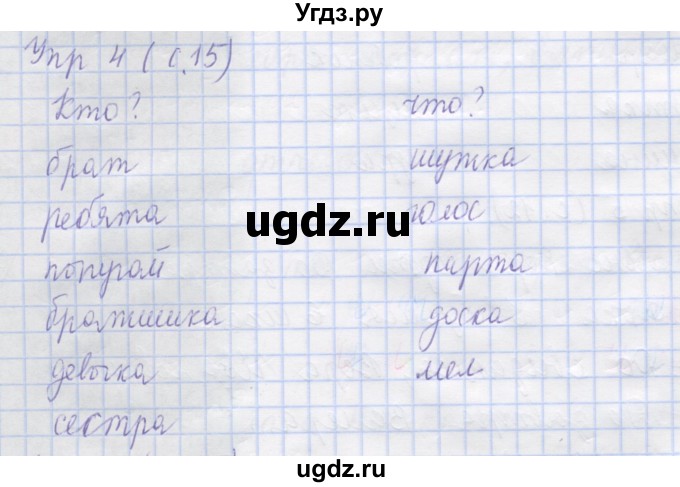 Угдз.ру
Упр 4 (с.15)
Кто? что?
брат шутка
ребята голос
попугай парта
братишка доска
девочка мел
сестра
ugdz.ru
ugdz.ru